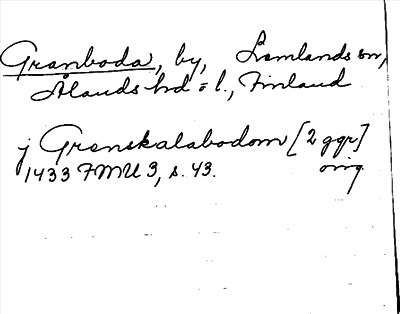 Granboda, by, Lemlands sn,
Ålands hd o. l., Finland
j Grenskalabodom [2 ggr]
1433 FMU 3, s. 43. orig.